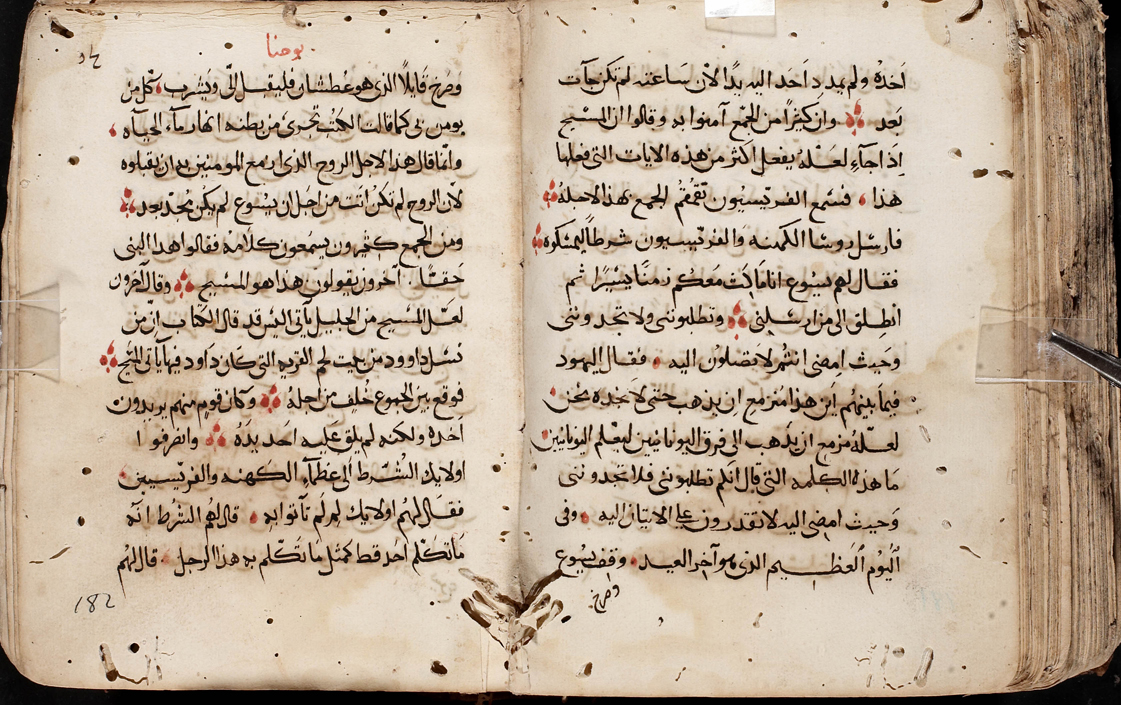 اخذه ولم يمدد احد اليه يدًا لان ساعته لم تكن جآت
بَعد وان كثيرًا من الجمع آمنوا به وقالوا ان المسيح
اذا جآء لعلّه يفعل اكثر من هذه الايات التى فعلها
هذا فسمع الفريسيون تقمقم الجمع بهذا لاجله
فارسل روسا الكهنه والفريسيون شرطًا ليمسكوه
فقال لهم يسوع انا ماكث معكم زمنًا يسيرًا ثم
انطلق الى من ارسلنى وتطلبوننى ولا تجدوننى
وحيث امضى انتم لا تصلون اليه فقال اليهود
فيما بينهم اين هذا مزمع ان يذهب حتى لا نجده نحن
لعلّه مزمع ان يذهب الى فرق اليونانيين ليعلم اليونانيين
ما هذه الكلمه التى قال انكم تطلبوننى فلا تجدوننى
وحيث امضى اليه لا تقدرون على الاتيان اليه وفى
اليوم العظيم الذى هو آخر العيد وقف يسوع
وصرخ
يوحنا
وصرخ قايلًا الذى هو عطشان فليقبل الىّ ويشرب كل من
يومن بى كما قالت الكتب تجرى من بطنه انهار مآء الحياه
وانما قال هذا لاجل الروح الذى ازمع المومنين به ان يقبلوه
لان الروح لم تكن اتت من اجل ان يسوع لم يكن مجد بعد
ومن الجمع كثيرون يسمعون كلامه فقالوا هذا النبى
حقًا آخرون يقولون هذا هو المسيح وقال آخرون
لعل المسيح من الجليل يأتى اليس قد قال الكتاب ان من
نسل داوود من بيت لحم القريه التى كان داود فيها يأتى المسيح
فوقع بين الجموع خلف من اجله وكان قوم منهم يريدون
اخذه ولكنه لم يلق عليه احد يده وانصرفوا
اولايك الشرط الى عظمآء الكهنه والفريسيين
فقال لهم اولايك لم لم تأتوا به قال لهم الشرط انه
ما تكلم احد قط كمثل ما تكلم به هذا الرجل قال لهم
182